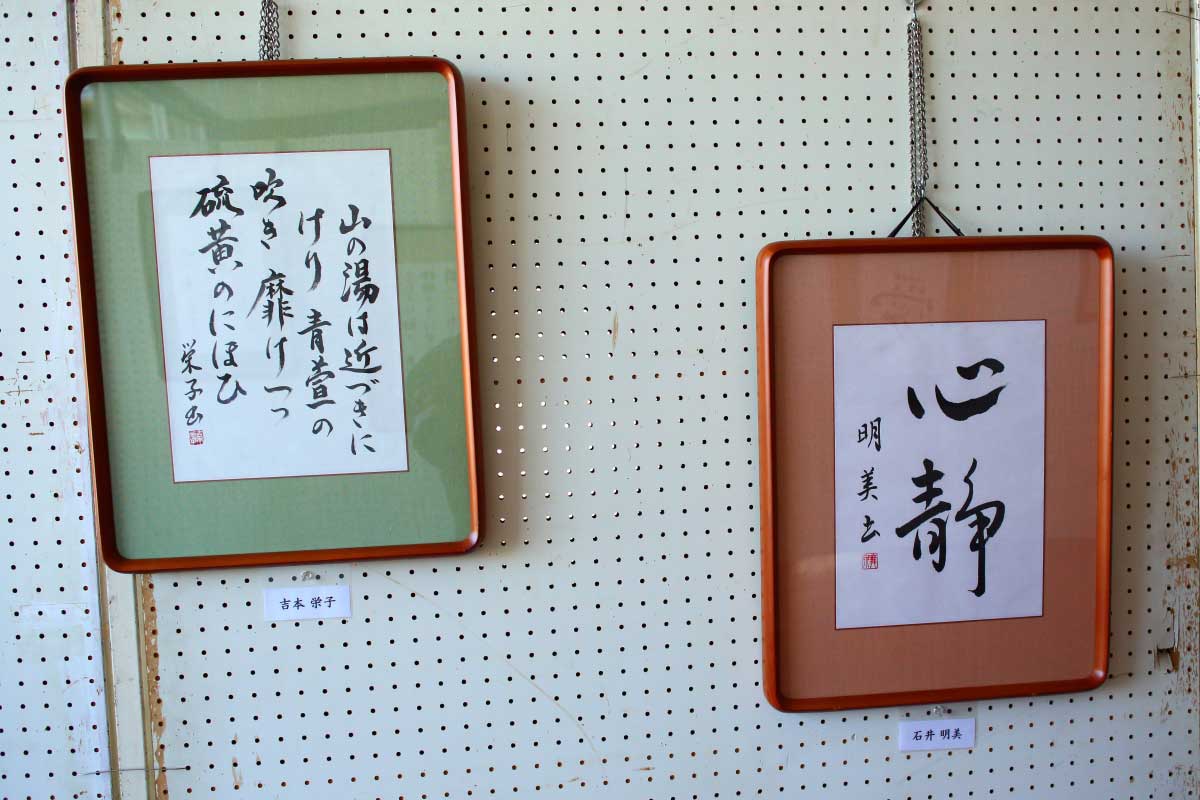 山の湯は近づきに
けり 青萱の
吹き靡けつつ
硫黄のにほひ
栄子書
吉本 栄子
心静
明美書
石井 明美